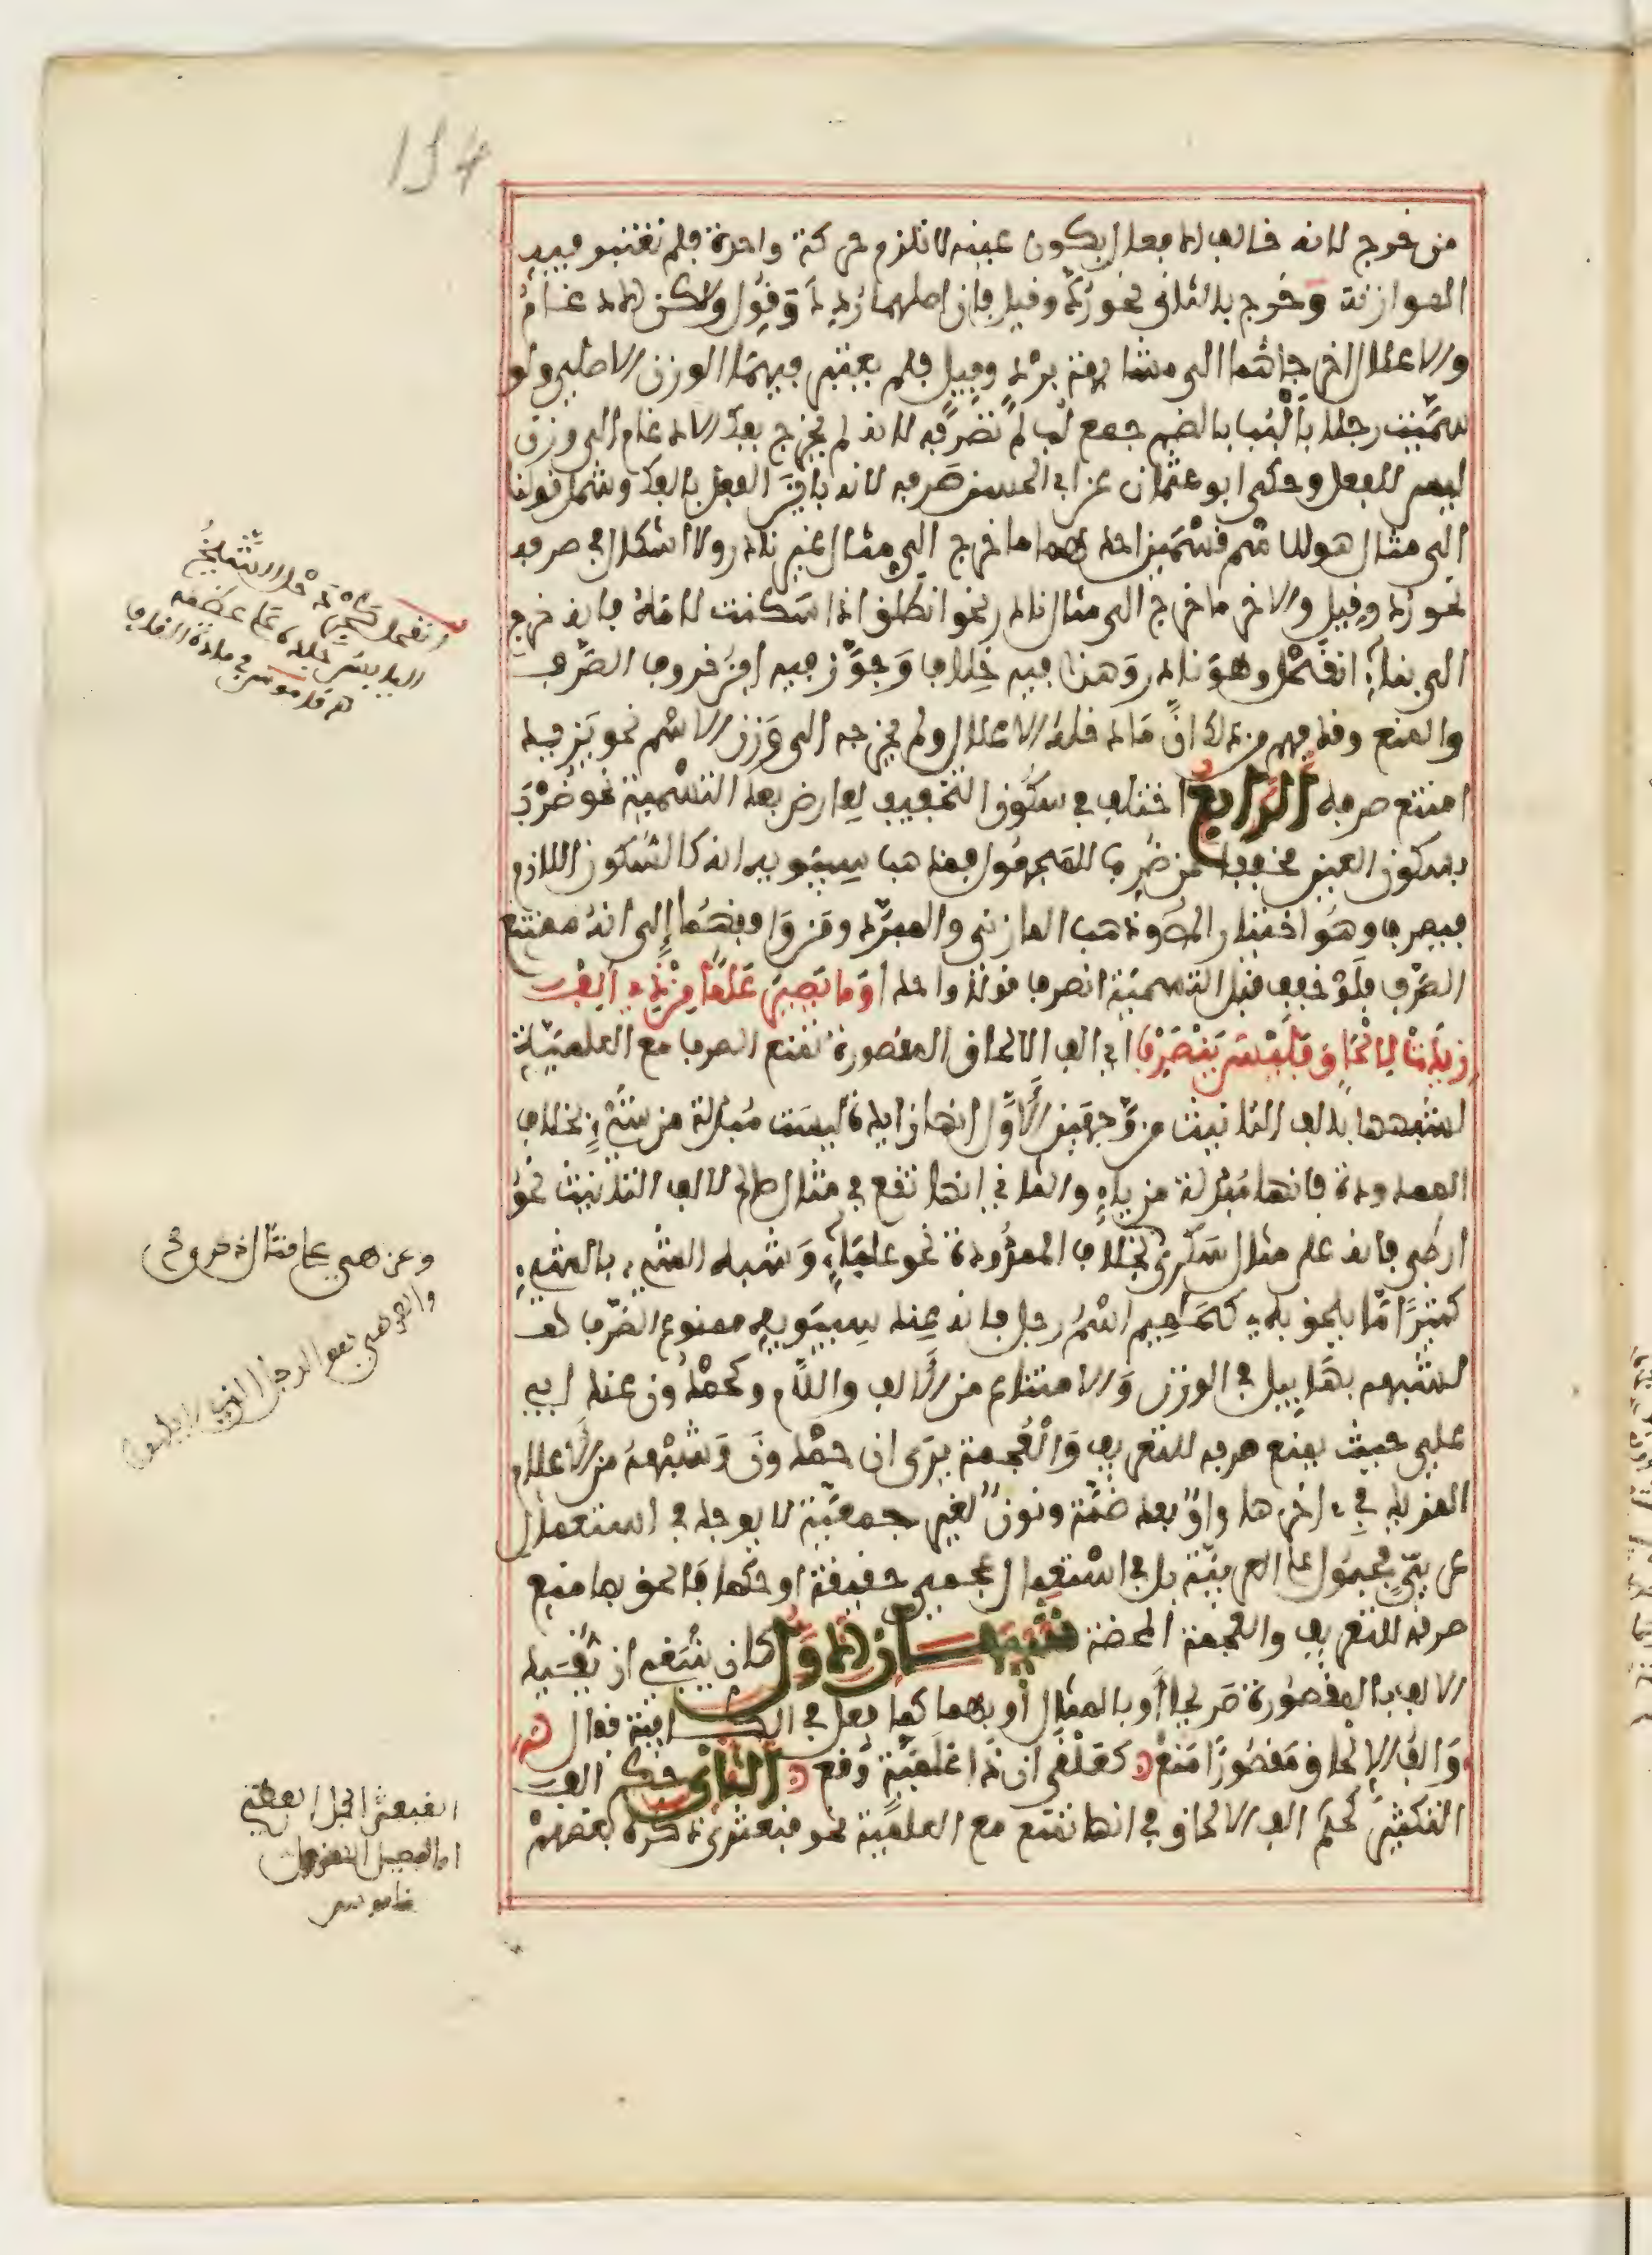 134
من خرج لانه خالف الافعال بكون عينه لا تلزم حركة واحدة فلم تعتبر فيه
الموازنة وخرج بالثاني نحو رُدّ وقيل فان اصلهما رُدِدَ وقُوِلَ ولكن الادغامُ
والاعلال اخرجاهما الى مشابهة بُرْد وفيل فلم يعتبر فيهما الوزن الاصلي ولو
سمّيت رجلا بأَلْبُب بالضم جمع لب لم تصرفه لانه لم يخرج بفك الادغام الى وزن
ليس للفعل وحكى ابو عثمان عن ابي الحسن صرفه لانه باين الفعل بالفك وشمل قولنا
الى مثال هو للاسم قسمين احدهما ما خرج الى مثال غير نادر ولا اشكال في صرفه
نحو رد وقيل والاخر ما خرج الى مثال نادر نحو انطلق اذا اسكنت لامه فانه خرج
الى بناء انقحل وهو نادر وهذا فيه خلاف وجوّز فيه ابن خروف الصرف
والمنع وقد فهم من ذلك انّ ما دخله الاعلال ولم يخرجه الى وزن الاسم نحو يزيد
امتنع صرفه الرابع اختلف في سكون التخفيف العارض بعد التسمية نحو ضُرْبَ
بسكون العين مخففا من ضُرِب المجهول فمذهب سيبويه انه كالسكون اللازم
فيصرف وهو اختيار المص وذهب المازني والمبرّد ومن وافقهما إلى انه ممتنع
الصرف فلو خفف قبل التسمية انصرف قولا واحدا وَمَا يَصِيرُ عَلَمًا مِنْ ذِي أَلِفْ
زِيدَتْ لِإِلْحَاقٍ فَلَيْسَ يَنْصَرِفْ اي الف الالحاق المقصورة تمنع الصرف مع العلميّة
لشبهها بالف التانيث من وجهين الأوّل انها زايدة ليست مبدلة من شيء بخلاف
الممدودة فانها مبدلة من ياء والثاني انها تقع في مثال صالح لالف التانيث نحو
ارطى فانه على مثال سَكْرى بخلاف الممدودة نحو علباء وشبه الشيء بالشيء
كثيرًا مّا يلحق به كحَامِيم اسْمُ رجل فانه عند سيبويه ممنوع الصرف لـ
لشبهه بهابيل في الوزن والامتناع من الالف واللام وكحمْدُون عند ابي
علي حيث يمنع صرفه للتعريف والعجمة يرى ان حمْدون وشبْهه من الاعلام
المزيد في ءاخرها واوٌ بعد ضمّة ونونٌ لغير جمعيّة لا يوجد في استعمال
عربيّ مجبول على العربيّة بل في استعمال عجمي حقيقة او حكما فالحق بما منع
صرفه للتعريف والعجمة المحضة تنبيهــان الاوّل كان ينبغي ان يقيد
الالف بالمقصورة صريحا أو بالمثال أو بهما كما فعل في الكافية فقال
وَالفُ الإلحاق مَقصُورًا مَنَعْ كعلْقَى ان ذَا عَلَمِيّة وَقع الثاني حكم الف
التكثير كحكم الف الالحاق في انها تمنع مع العلمية نحو قبعثرى ذكره بعضهمْ
وعزهى على مثال
والعزهى هو الرجل الذي لا يلهو
القبعثرا الجمل العظيم
او الفصيل المهزول
قاموس